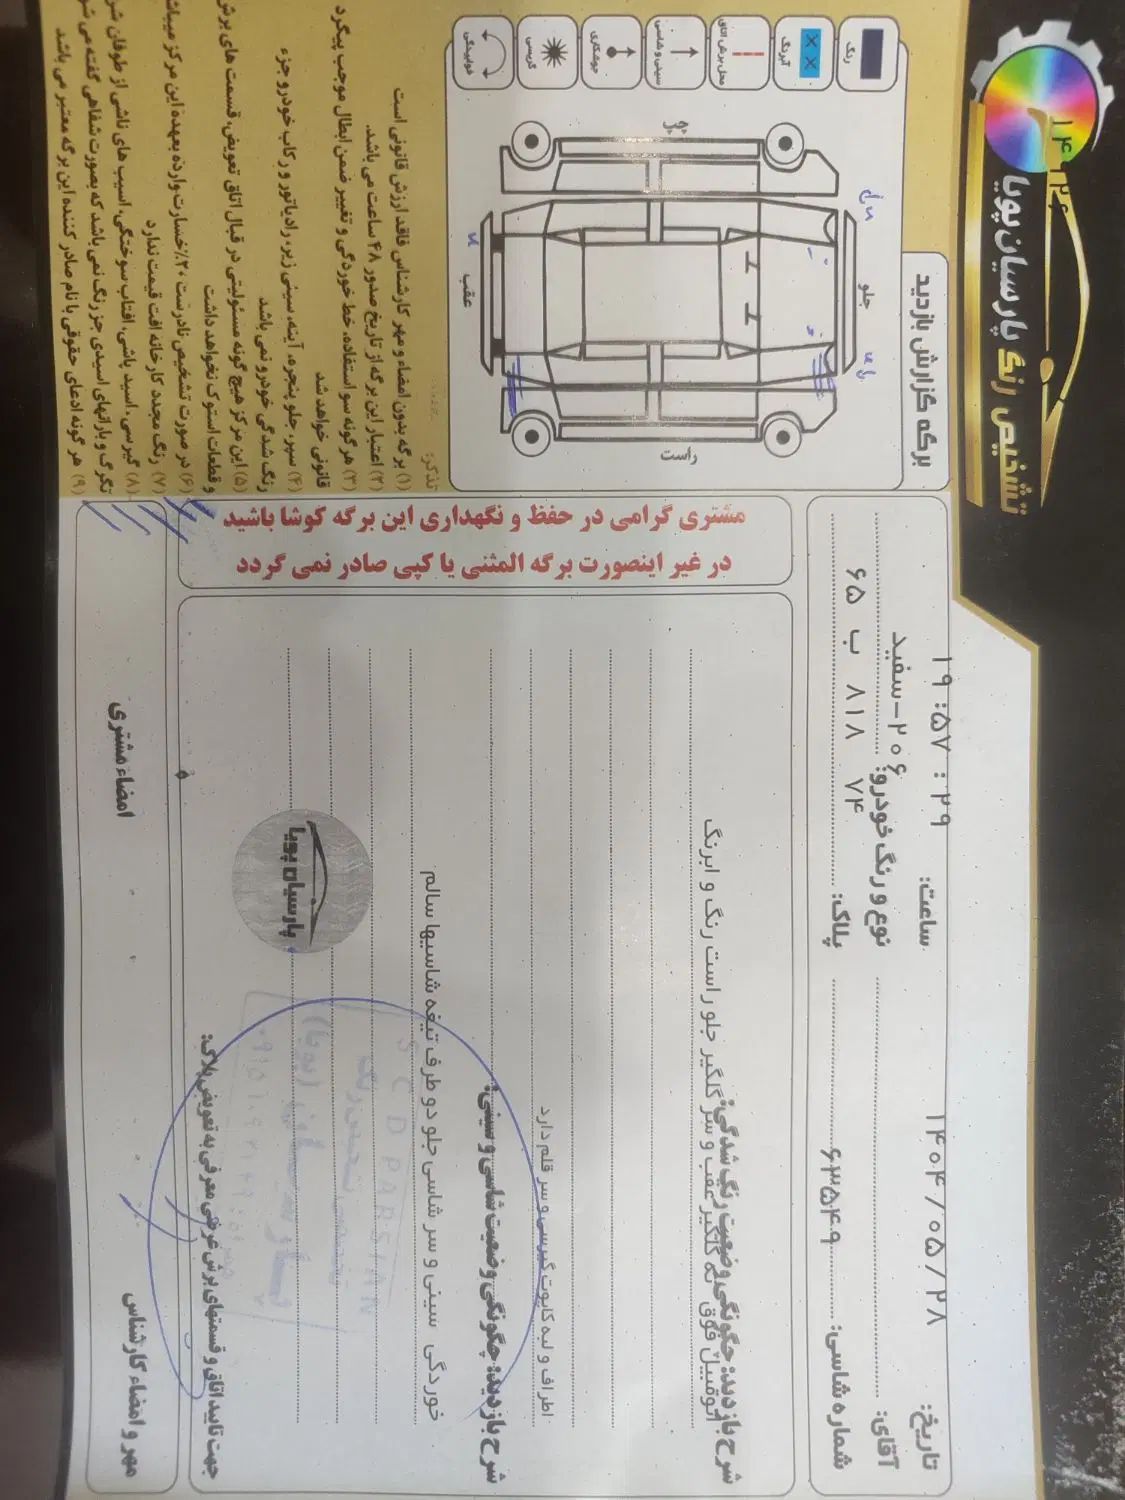 تشخیص رنگ پارسیان پویا
تاریخ: ۱۴۰۴/۰۵/۲۸
ساعت: ۱۹:۵۷:۲۹
آقای:
نوع و رنگ خودرو: ۲۰۶-سفید
شماره شاسی: ۶۳۵۴۹
پلاک: ۷۴ ۸۱۸ ب ۶۵
شرح بازدید: چگونگی وضعیت رنگ شدگی:
اتومبیل فوق ته گلگیر عقب و سر گلگیر جلو راست رنگ و ابرنگ
اطراف و لبه کاپوت گیرسی و سر قلم دارد
شرح بازدید: چگونگی وضعیت شاسی و سینی:
خوردگی سینی و سر شاسی جلو دو طرف تیغه شاسیها سالم
پارسیان پویا
S C D PARSIAN
تشخیص رنگ
جهت تایید اتاق و قسمتهای برش عرضی معرفی به تعویض پلاک:
مهر و امضاء کارشناس
امضاء مشتری
مشتری گرامی در حفظ و نگهداری این برگه کوشا باشید
در غیر اینصورت برگه المثنی یا کپی صادر نمی گردد
برگه گزارش بازدید
رنگ
آبرنگ
محل برش اتاق
سینی و شاسی
جوشکاری
گریسی
خوابیدگی
جلو
عقب
چپ
راست
تذکر:
(۱) برگه بدون امضاء و مهر کارشناس فاقد ارزش قانونی است
(۲) اعتبار این برگه از تاریخ صدور ۴۸ ساعت می باشد.
(۳) هر گونه سوء استفاده، خط خوردگی و تغییر ضمن ابطال موجب پیگرد
قانونی خواهد شد
(۴) سپر، جلو پنجره، آینه، سینی زیر، رادیاتور و رکاب خودرو جزء
رنگ شدگی خودرو نمی باشد
(۵) این مرکز هیچ گونه مسئولیتی در قبال اتاق تعویض، قسمت های برش
و قطعات استوک نخواهد داشت
(۶) در صورت تشخیص نادرست ۲۰٪ خسارت وارده بعهده این مرکز میباشد
(۷) رنگ مجدد کارخانه افت قیمت ندارد
(۸) گیرسی، اسید پاشی، افتاب سوختگی، آسیب های ناشی از طوفان شن
تگرگ و بارانهای اسیدی جز رنگ نمی باشد که بصورت شفاهی گفته می شود
(۹) هر گونه ادعای حقوقی با نام صادر کننده این برگه معتبر می باشد